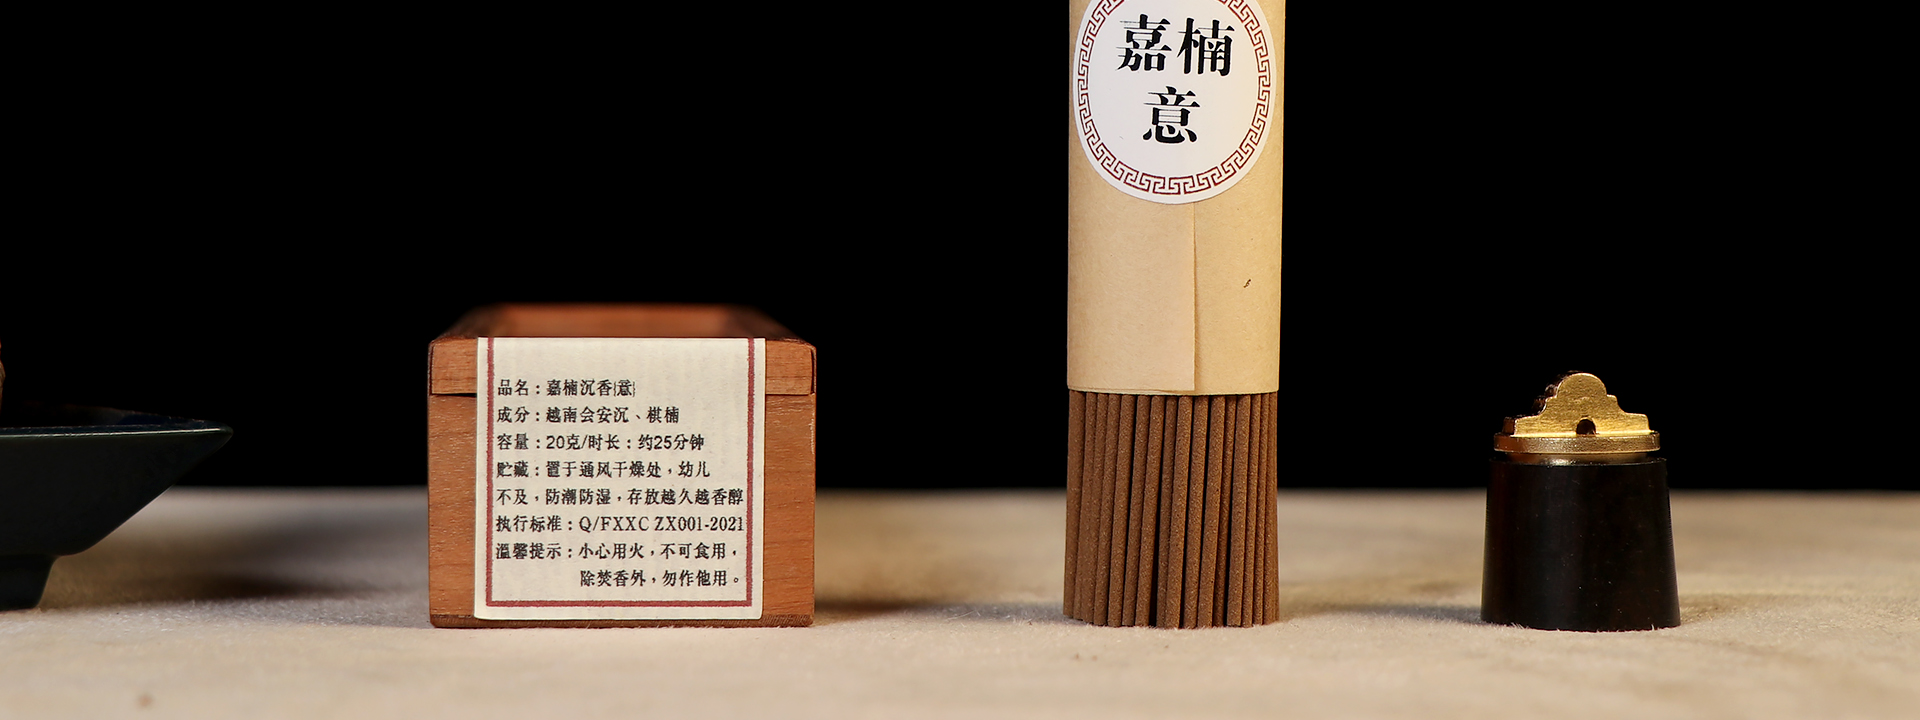 嘉楠
意
品名：嘉楠沉香{意}
成分：越南会安沉、棋楠
容量：20克/时长：约25分钟
贮藏：置于通风干燥处，幼儿
不及，防潮防湿，存放越久越香醇
执行标准：Q/FXXC ZX001-2021
温馨提示：小心用火，不可食用，
除焚香外，勿作他用。